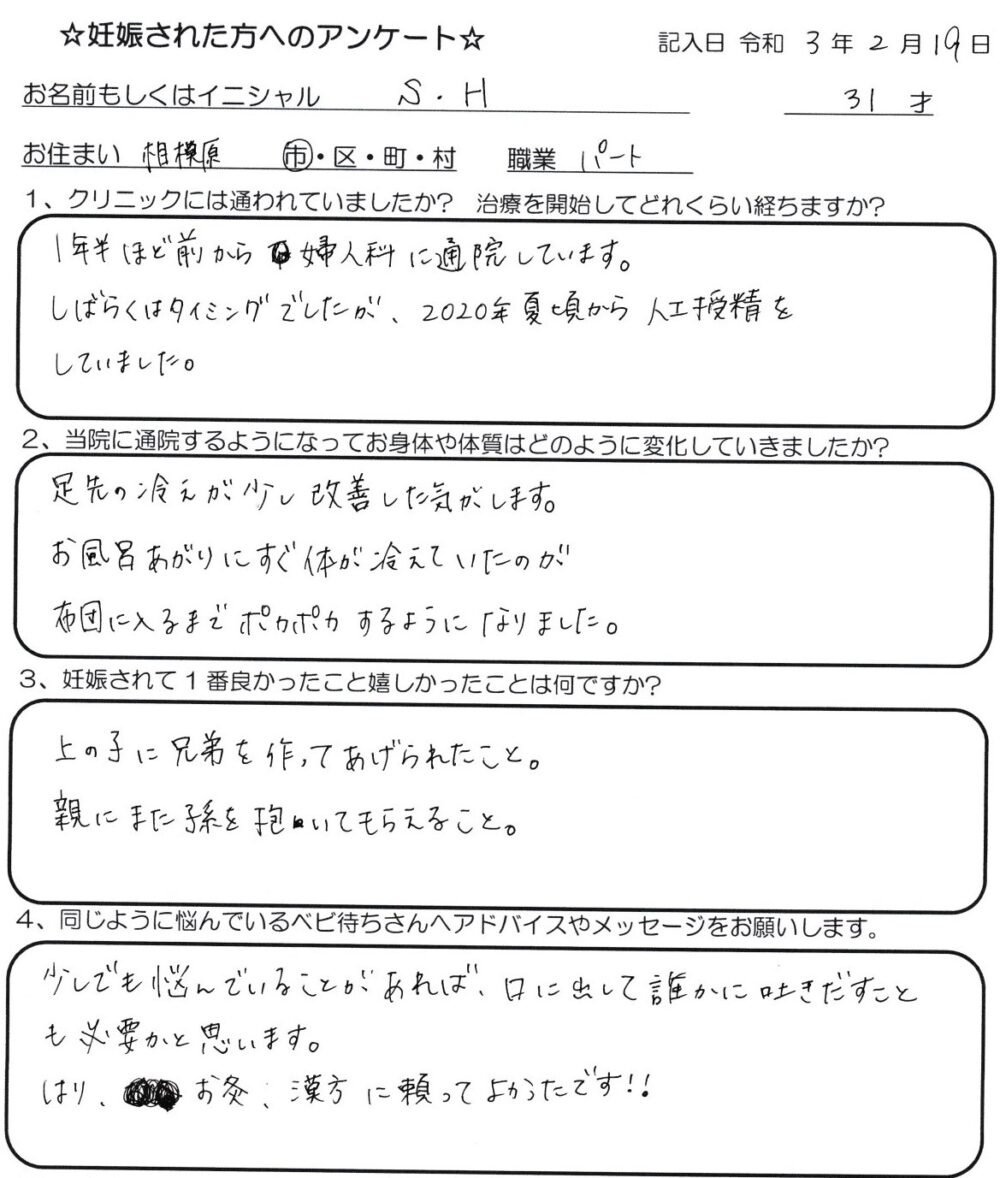 ☆妊娠された方へのアンケート☆ 記入日 令和 3 年 2 月 19 日
お名前もしくはイニシャル S・H 31 才
お住まい 相模原 市・区・町・村 職業 パート
1、クリニックには通われていましたか? 治療を開始してどれくらい経ちますか?
1年半ほど前から婦人科に通院しています。
しばらくはタイミングでしたが、2020年夏頃から人工授精を
していました。
2、当院に通院するようになってお身体や体質はどのように変化していきましたか?
足先の冷えが少し改善した気がします。
お風呂あがりにすぐ体が冷えていたのが
布団に入るまでポカポカするようになりました。
3、妊娠されて1番良かったこと嬉しかったことは何ですか?
上の子に兄弟を作ってあげられたこと。
親にまた孫を抱いてもらえること。
4、同じように悩んでいるベビ待ちさんへアドバイスやメッセージをお願いします。
少しでも悩んでいることがあれば、口に出して誰かに吐きだすこと
も必要かと思います。
はり、お灸、漢方に頼ってよかったです!!